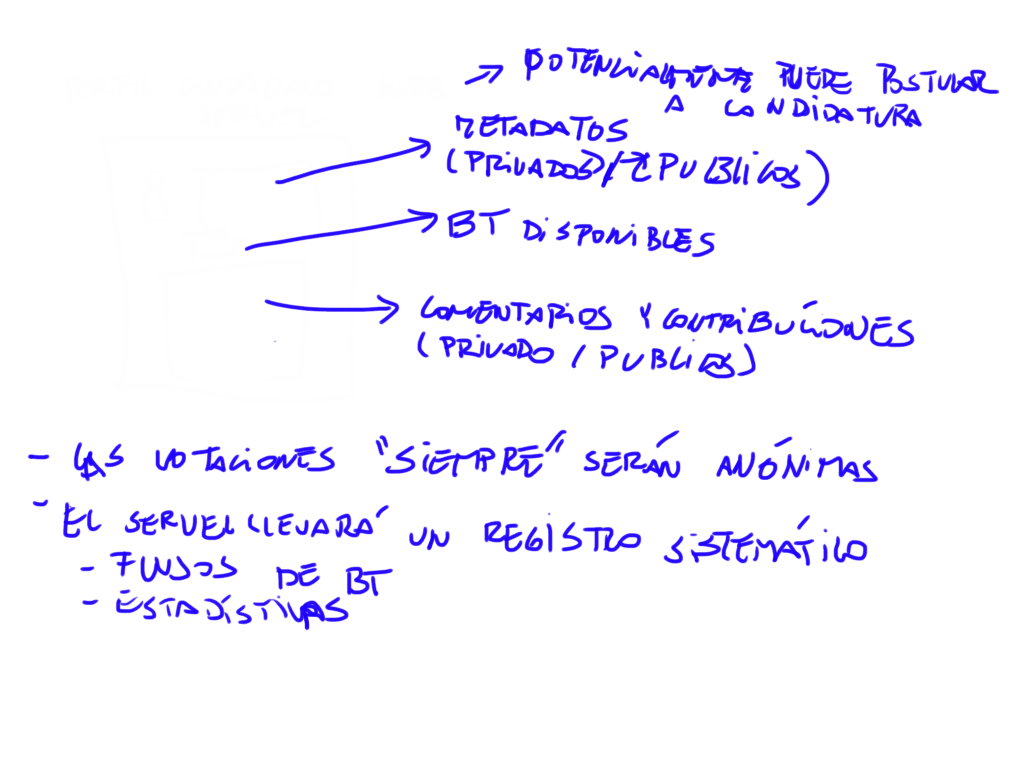 → POTENCIALMENTE PUEDE POSTULAR
A CANDIDATURA
→ METADATOS
(PRIVADOS / PUBLICOS)
→ BT DISPONIBLES
→ COMENTARIOS Y CONTRIBUCIONES
(PRIVADO / PUBLICOS)
- LAS VOTACIONES "SIEMPRE" SERÁN ANÓNIMAS
- EL SERVEL LLEVARÁ UN REGISTRO SISTEMÁTICO
- FLUJOS DE BT
- ESTADÍSTICAS